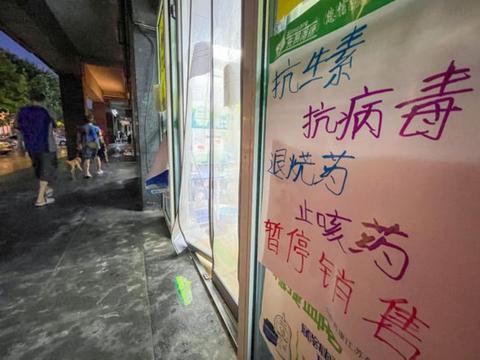 抗生素
抗病毒
退烧药
止咳药
暂停销售